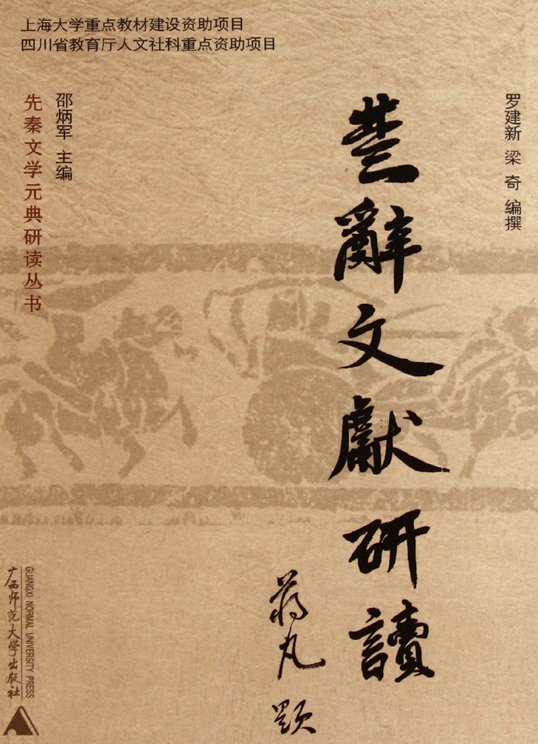 上海大学重点教材建设资助项目
四川省教育厅人文社科重点资助项目
罗建新 梁奇 编撰
楚辭文獻研讀
蒋凡 题
邵炳军 主编
先秦文学元典研读丛书
广西师范大学出版社
GUANGXI NORMAL UNIVERSITY PRESS